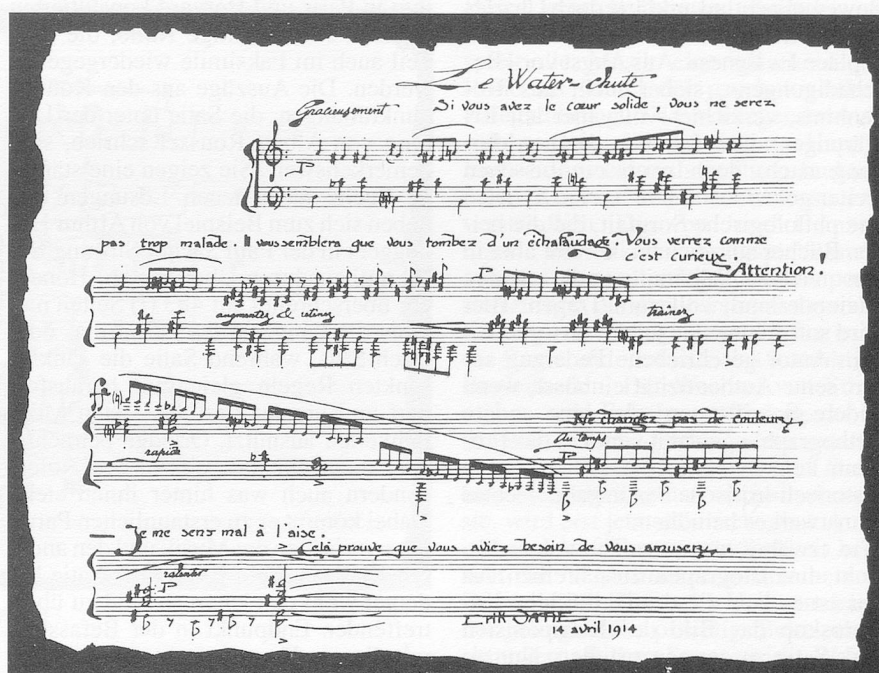 Le Water-chute
Gracieusement
Si vous avez le cœur solide, vous ne serez
P
pas trop malade. Il vous semblera que vous tombez d'un échafaudage. Vous verrez comme
c'est curieux.
Attention!
P
augmentez et retenez
Traînez
rapide
Ne changez pas de couleur.
Au temps
P
Je me sens mal à l'aise.
Cela prouve que vous aviez besoin de vous amuser.
ralentir
P
ERIK SATIE
14 avril 1914